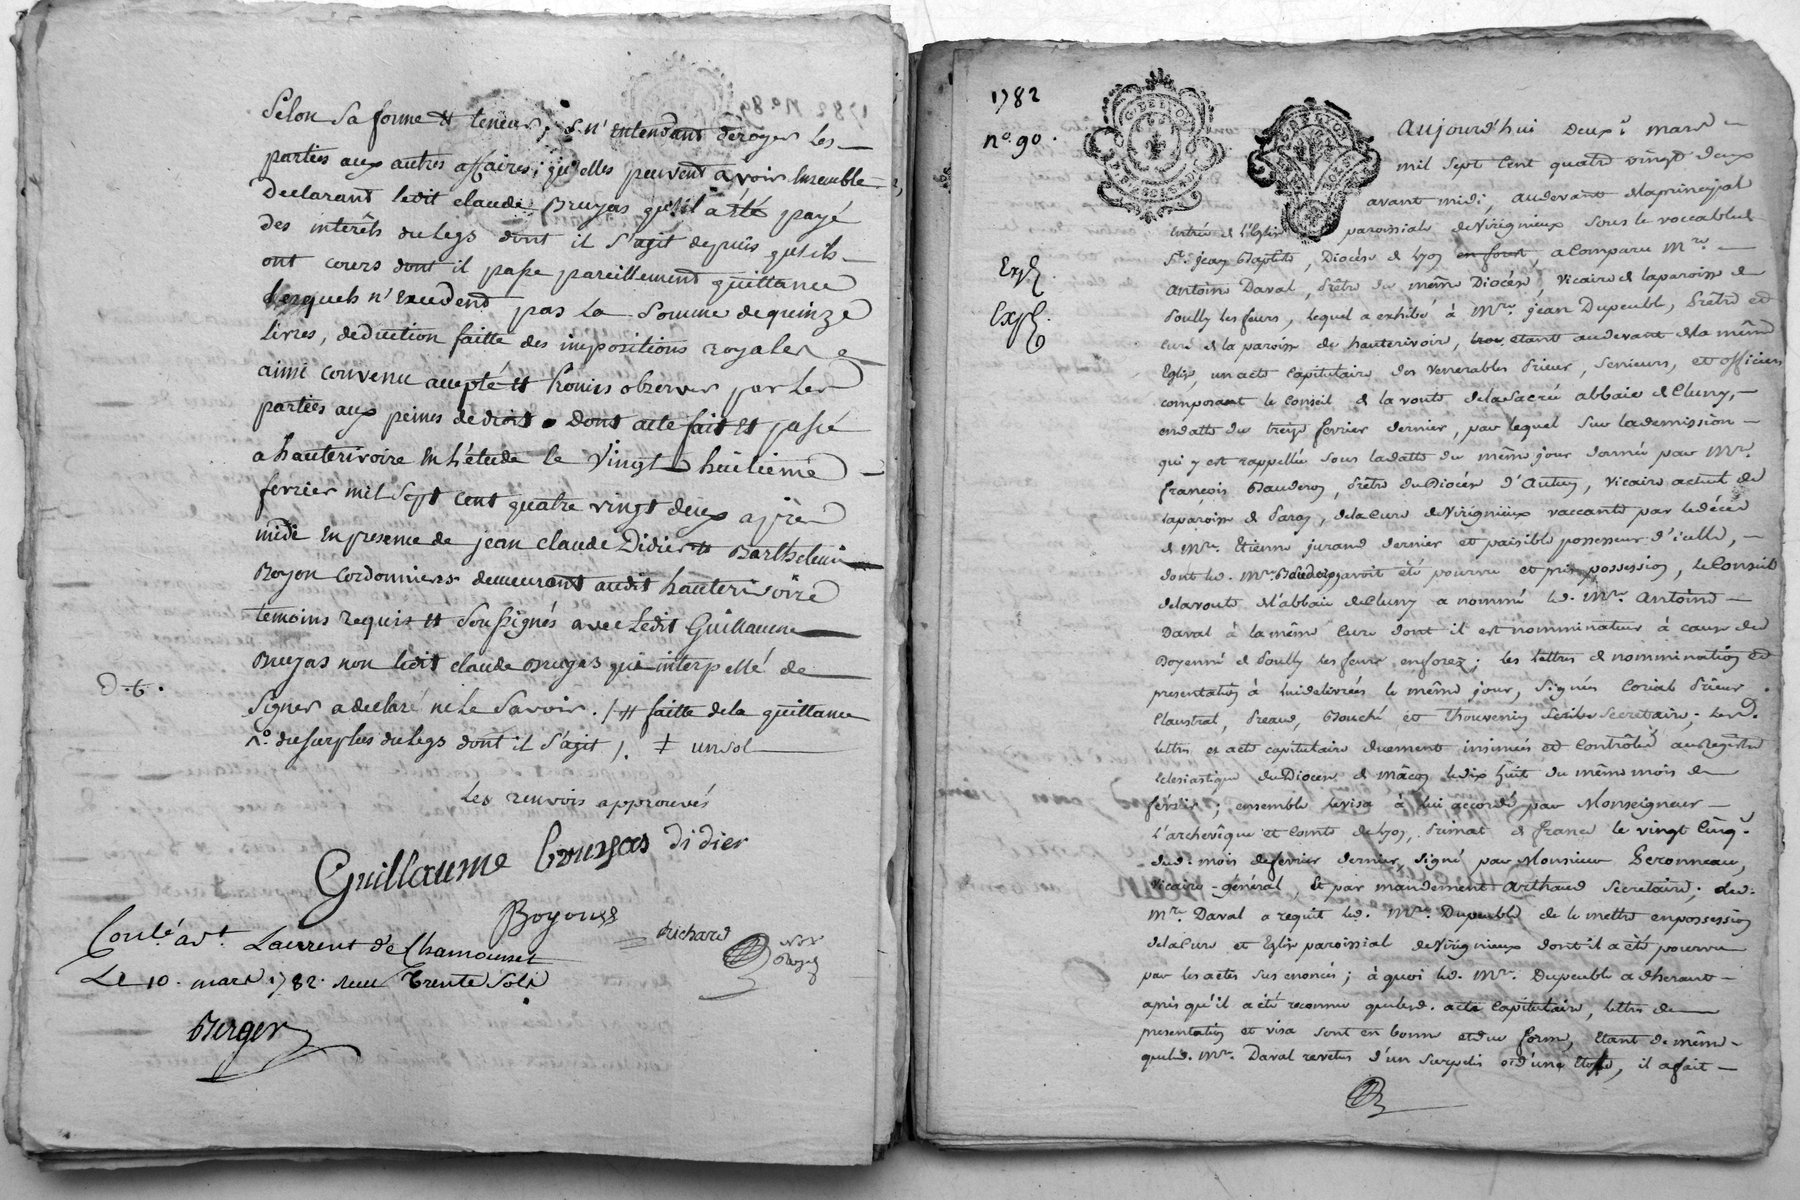 Selon Sa forme et teneur, S. n'entendant deroger les
parties aux autres affaires, qu'elles peuvent avoir Ensemble
Declarant ledit claude Bruyas qu'il a été payé
des intérêts du legs dont il s'agit depuis qu'ils
ont cours dont il passe pareillement quittance
lesquels n'excedent pas la Somme de quinze
livres, deduction faitte des impositions royales
ainsi convenu accepté et promis observer par les
parties aux peines de droit. Dont acte fait et passé
a hauterivoire en l'étude le vingt huitieme
fevrier mil sept cent quatre vingt deux après
midi En presence de jean claude Didier et Barthelemi
Boyon Cordonniers demeurant audit hauterivoire
temoins requis et soussignés avec ledit Guillaume
Bruyas non ledit claude Bruyas qui interpellé de
D.t.
Signer a declaré ne le Savoir. /# faitte de la quittance
du surplus du legs dont il s'agit /. ‡ un sol
Les renvois approuvés
Guillaume bruyas didier
Boyon
Richard
Conlé a St. Laurent de Chamousset
Le 10. mars 1782. reçu trente Sols
Berger
1782
n° 90.
G. DE LYON
G. DE LYON
Expé
Expé
Aujourd'hui deuxe. mars
mil sept Cent quatre vingt deux
avant midi, audevant de la principal
entrée de l'Eglise paroissiale de Virigneux sous le voccable de
St. jean Baptiste, Diocèse de Lyon en forest, a Comparu Mre.
Antoine Daval, Prêtre du même Diocèse, Vicaire de la paroisse de
Poully les feurs, lequel a exhibé à Mre. jean Dupeuble, Prêtre et
curé de la paroisse de hauterivoire, étant audevant de la même
Eglise, un acte Capitulaire des venerables Prieur, Senieurs, et officiers
composant le Conseil de la voute de la Sacrée abbaie de Cluny,
en datte du treize fevrier dernier, par lequel sur la demission
qui y est rappellée sous la datte du même jour donnée par Mre.
françois Bauderon, Prêtre du Diocèse d'Autun, Vicaire actuel de
la paroisse de Paray, de la Cure de Virigneux vaccante par le décès
de Mre. Etienne jurand dernier et paisible possesseur d'icelle,
dont led. Mre. Bauderon avoit été pourvu et pris possession, le Conseil
de la voute de l'abbaie de Cluny a nommé led. Mre. Antoine
Daval à la même Cure dont il est nominateur à cause du
Doyenné de Poully les feurs en forez; les lettres de nommination et
presentation à lui delivrées le même jour, Signées Corial Prieur
Claustral, Preaud, Bouché et Thouvenin Scribe Secretaire; lesd.
lettres et acte capitulaire duement insinués et Contrôlés au Registre
Eclesiastique du Diocèse de Mâcon le dix huit du même mois de
février; ensemble le visa à lui accordé par Monseigneur
l'archevêque et Comte de Lyon, Primat de france le vingt Cinq.
dud. mois de fevrier dernier, signé par Monsieur Peronneau,
Vicaire-général, Et par mandement Arthaud Secretaire; led.
Mre. Daval a requit led. Mre. Dupeuble de le mettre en possession
de la Cure et Eglise paroissial de Virigneux dont il a été pourvu
par les actes sus enoncés; à quoi led. Mre. Dupeuble adherant
après qu'il a été reconnu que lesd. acte Capitulaire, lettres de
presentation et visa sont en bonne et due forme, Etant de même
que led. Mre. Daval revetus d'un Surpelis et d'une Etole, il a fait